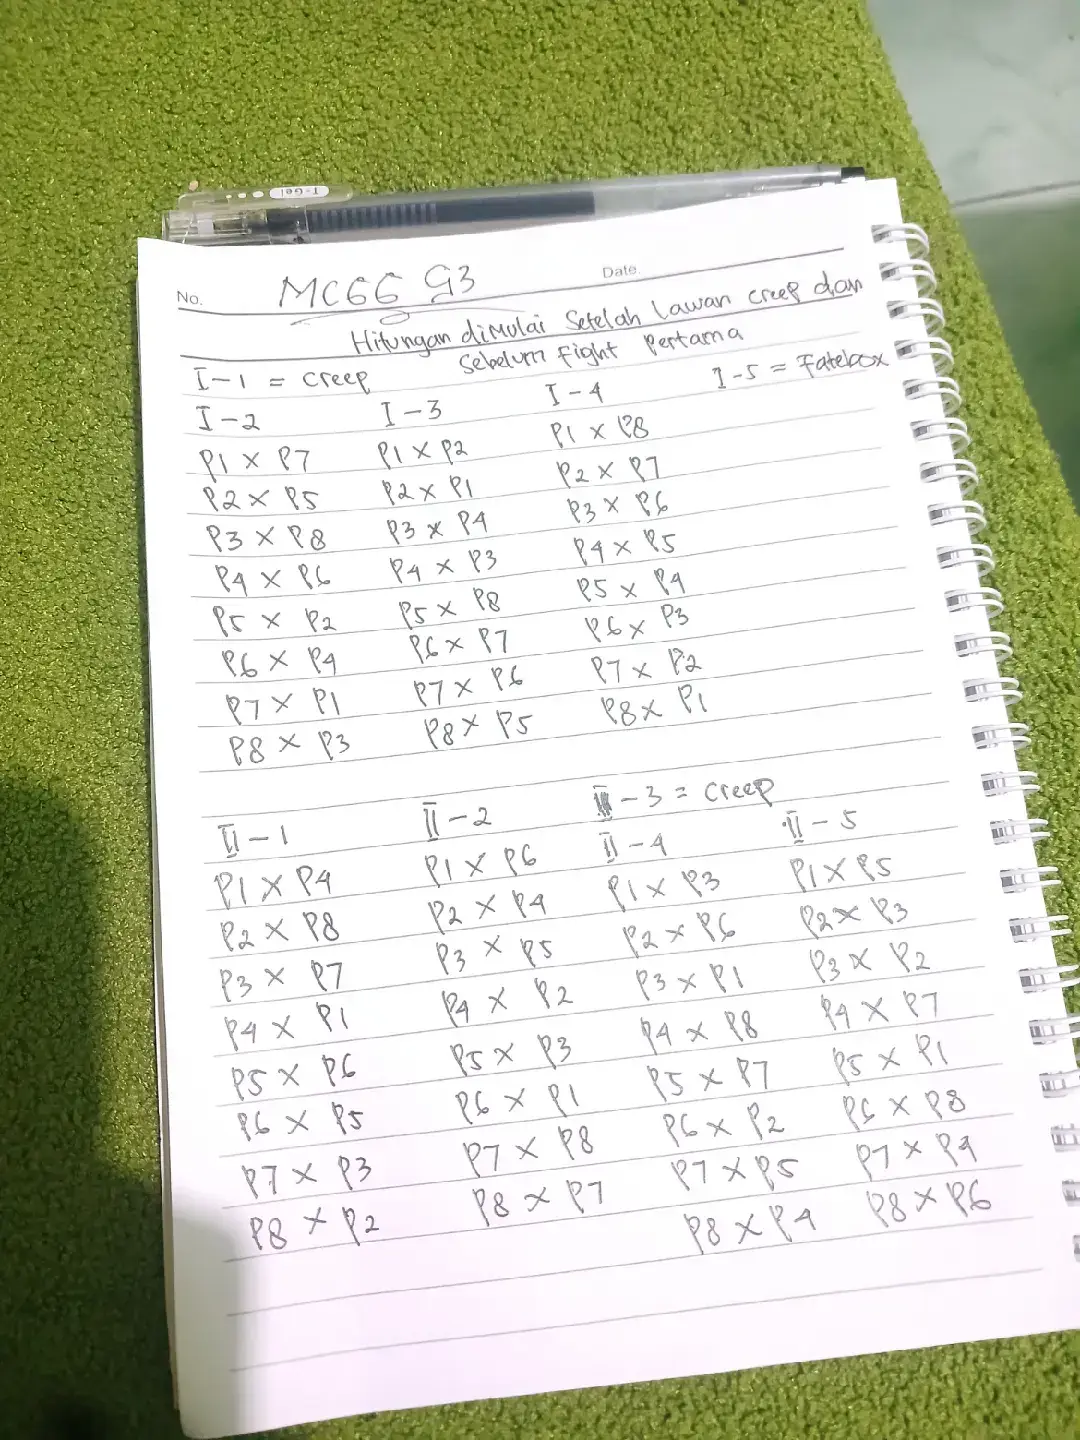 I-Gel
No. MC66 G3 Date.
Hitungan dimulai Setelah Lawan creep dan
Sebelum Fight Pertama
I-1 = creep I-5 = Fatebox
I-2 I-3 I-4
P1 x P7 P1 x P2 P1 x P8
P2 x P5 P2 x P1 P2 x P7
P3 x P8 P3 x P4 P3 x P6
P4 x P6 P4 x P3 P4 x P5
P5 x P2 P5 x P8 P5 x P4
P6 x P4 P6 x P7 P6 x P3
P7 x P1 P7 x P6 P7 x P2
P8 x P3 P8 x P5 P8 x P1
II-3 = creep
II-1 II-2 II-4 II-5
P1 x P4 P1 x P6 P1 x P3 P1 x P5
P2 x P8 P2 x P4 P2 x P6 P2 x P3
P3 x P7 P3 x P5 P3 x P1 P3 x P2
P4 x P1 P4 x P2 P4 x P8 P4 x P7
P5 x P6 P5 x P3 P5 x P7 P5 x P1
P6 x P5 P6 x P1 P6 x P2 P6 x P8
P7 x P3 P7 x P8 P7 x P5 P7 x P4
P8 x P2 P8 x P7 P8 x P4 P8 x P6